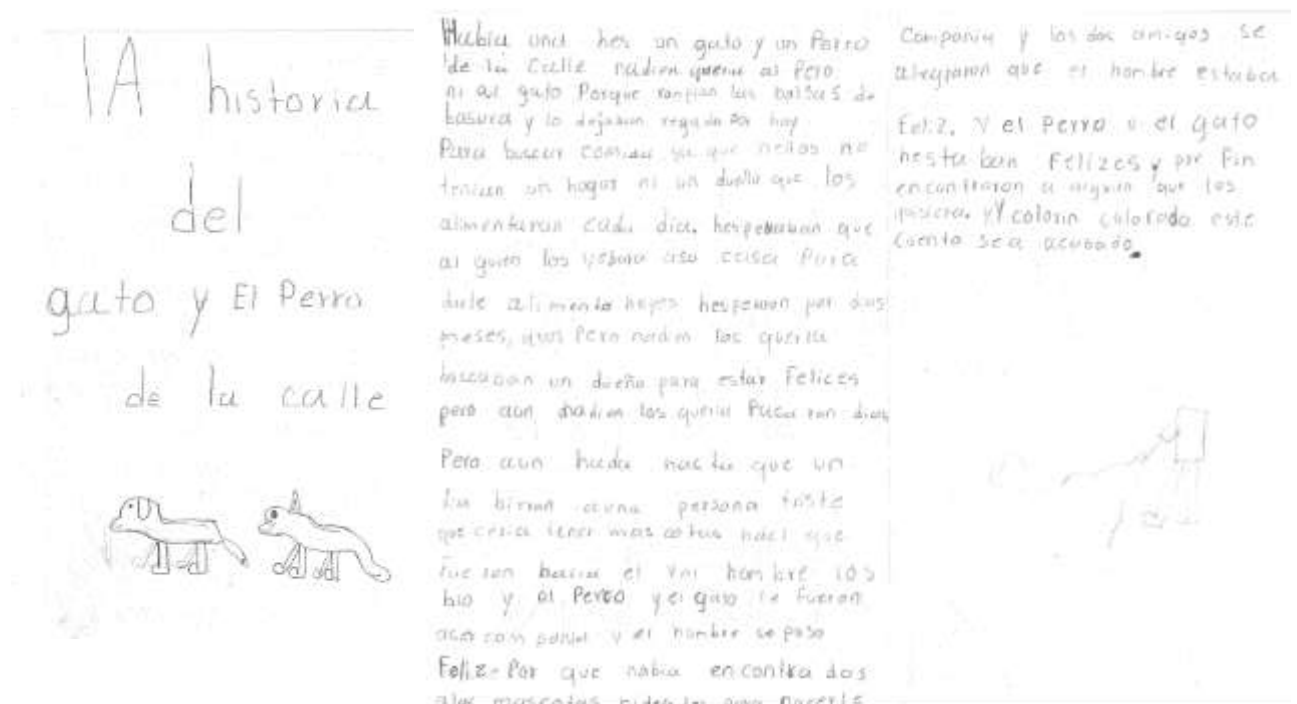 lA historia
del
gato y El Perro
de la calle
Habia una hes un gato y un Perro
de la Calle nadien queria al Pero
ni al gato Porque ronpian las bolsas de
basura y lo dejaban regado por hay
Para buscar comida ya que hellos no
tenian un hogar ni un dueño que los
alimentaran cada dia. hesperaban que
al guien los yebara asu casa Para
darle alimento heyos hesperaron por dos
meses, Pero nadien los queria
buscaban un dueño para estar Felices
pero aun nadien los queria Pasa ron dias
Pero aun nada hasta que un
dia bieron auna persona triste
que queria tener mas cotas hasi que
fueron hacia el hombre los
bio y al Perro y el gato le fueron
aser con pañia y el hombre se puso
Feliz Por que habia encontra dos
mascotas para hacerle
Compañia y los dos amigos se
alegraron que el hombre estaba
Feliz. Y el Perro y el gato
hesta ban Felizes y por Fin
encontraron a alguien que los
quisiera. Y colorin colorado este
cuento se a acabado.